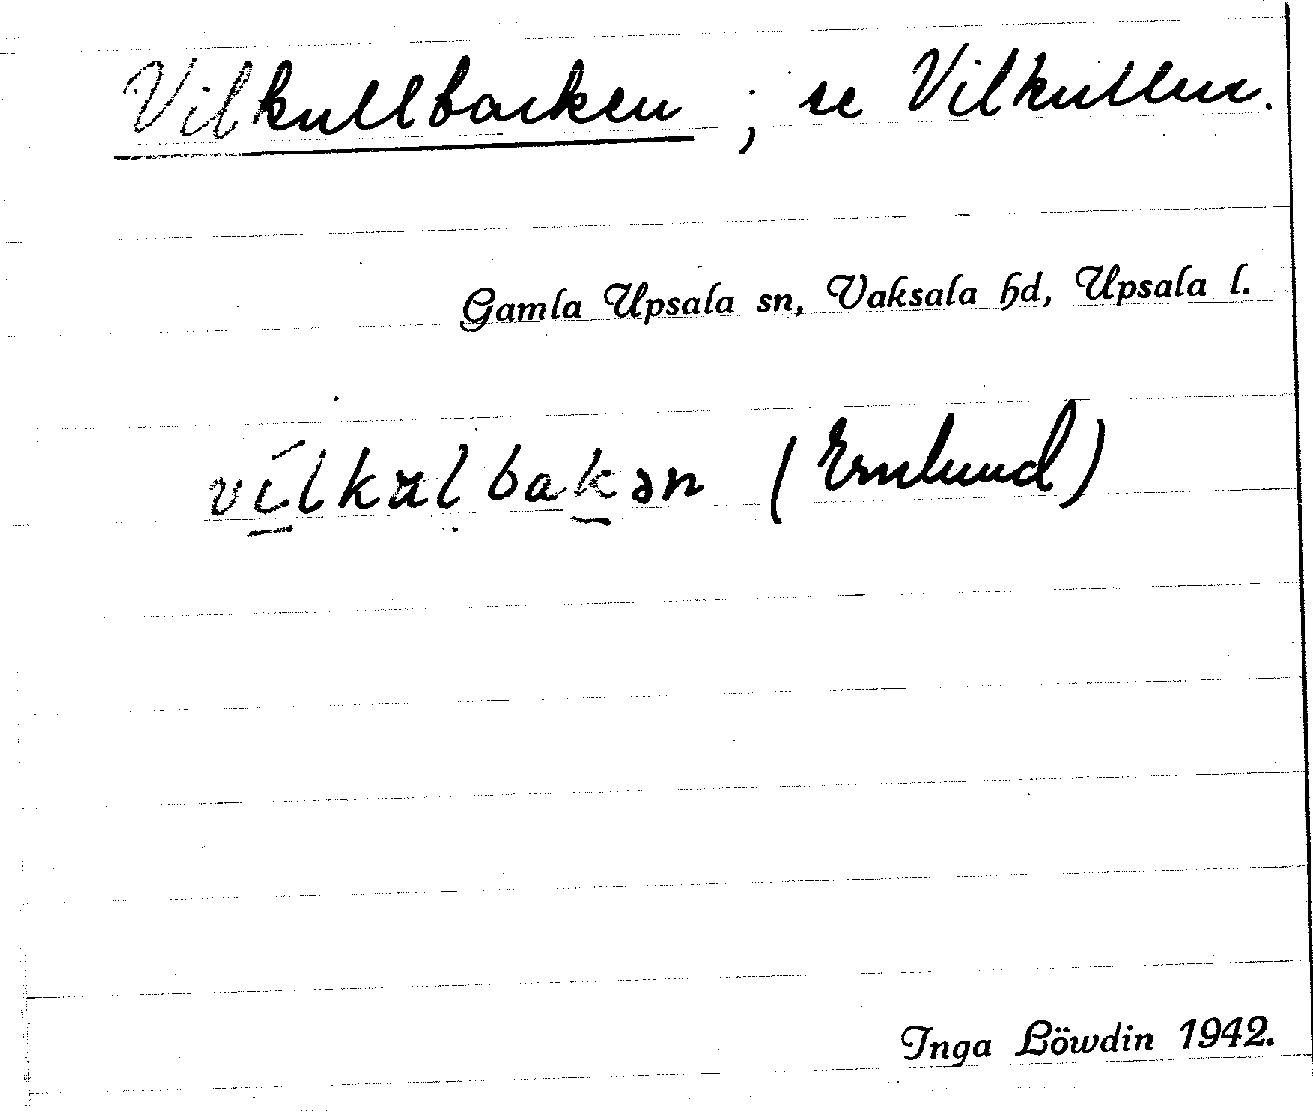 Vilkullbacken ; se Vilkullen.
Gamla Upsala sn, Vaksala hd, Upsala l.
vílkulbakən (Ernlund)
Inga Löwdin 1942.